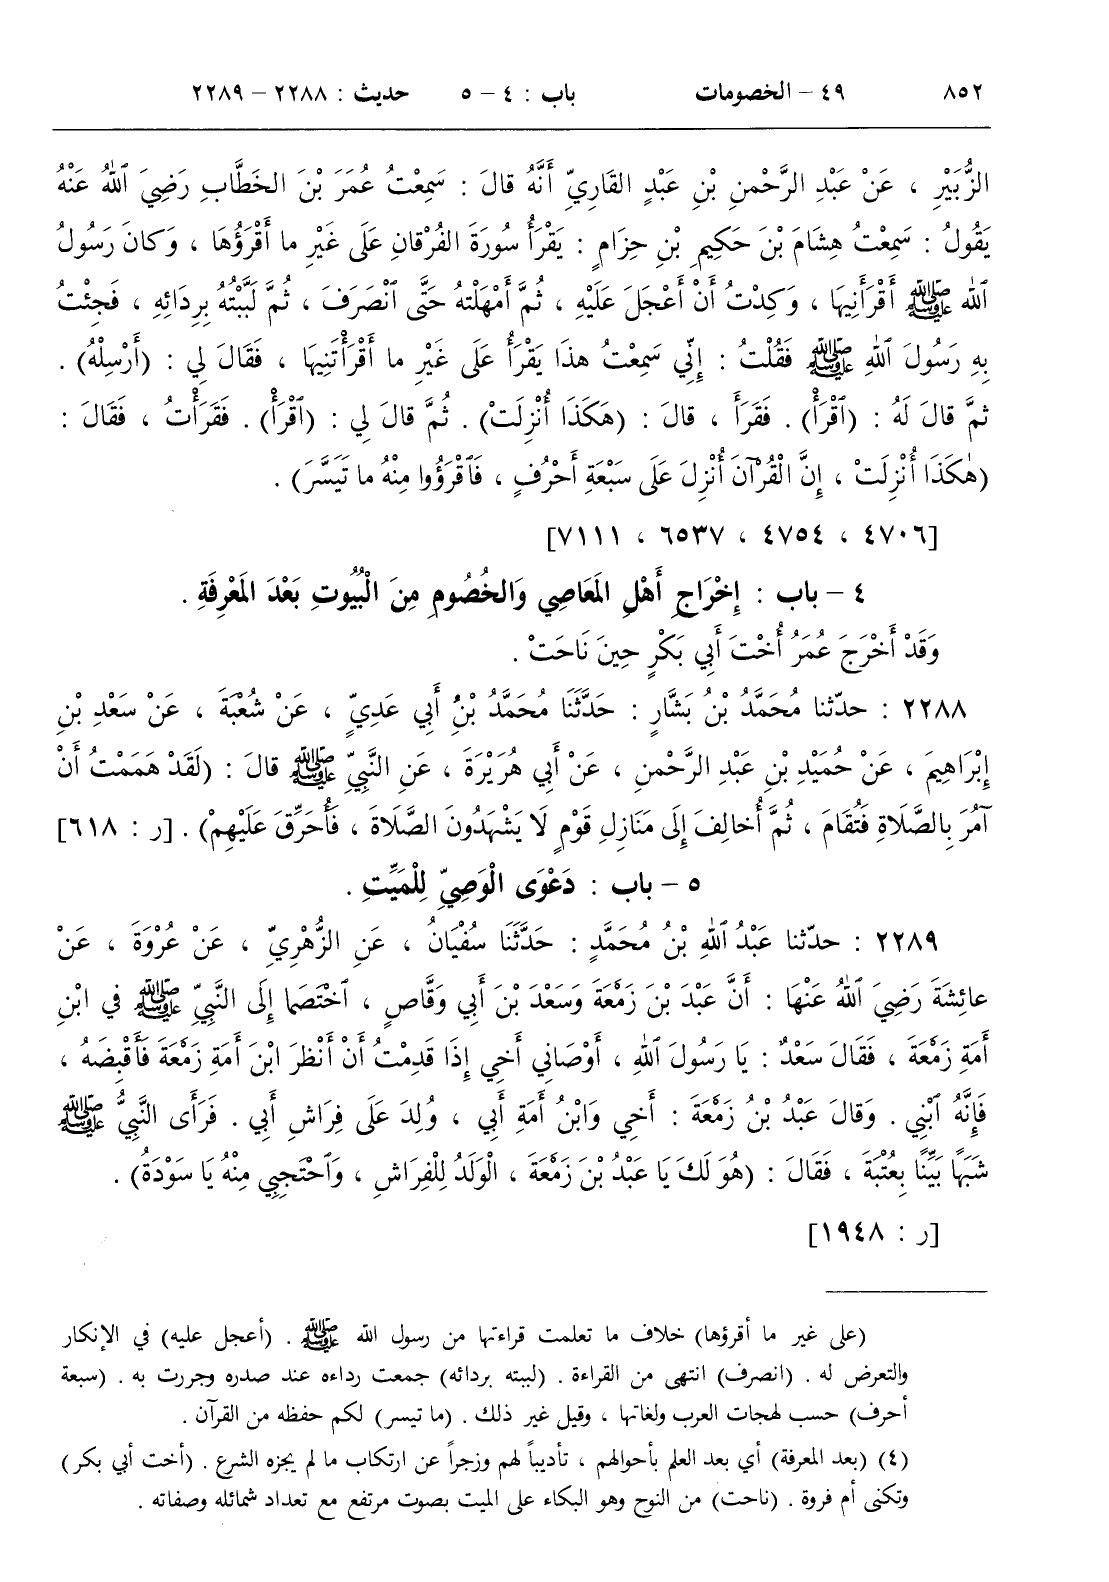 ٨٥٢ ٤٩ – الخصومات باب : ٤ – ٥ حديث : ٢٢٨٨ – ٢٢٨٩
الزُّبَيْرِ ، عَنْ عَبْدِ الرَّحْمنِ بْنِ عَبْدٍ القَارِيِّ أَنَّهُ قالَ : سَمِعْتُ عُمَرَ بْنَ الخَطَّابِ رَضِيَ ٱللهُ عَنْهُ
يَقُولُ : سَمِعْتُ هِشَامَ بْنَ حَكِيمِ بْنِ حِزَامٍ : يَقْرَأُ سُورَةَ الفُرْقانِ عَلَى غَيْرِ ما أَقْرَؤُهَا ، وَكانَ رَسُولُ
ٱللهِ ﷺ أَقْرَأَنِيهَا ، وَكِدْتُ أَنْ أَعْجَلَ عَلَيْهِ ، ثُمَّ أَمْهَلْتهُ حَتَّى ٱنْصَرَفَ ، ثُمَّ لَبَّبْتُهُ بِرِدَائِهِ ، فَجِئْتُ
بِهِ رَسُولَ ٱللهِ ﷺ فَقُلْتُ : إِنِّي سَمِعْتُ هذَا يَقْرَأُ عَلَى غَيْرِ ما أَقْرَأْتَنِيهَا ، فَقَالَ لِي : (أَرْسِلْهُ) .
ثمَّ قالَ لَهُ : (ٱقْرَأْ) . فَقَرَأَ ، قالَ : (هَكَذَا أُنْزِلَتْ) . ثُمَّ قالَ لِي : (ٱقْرَأْ) . فَقَرَأْتُ ، فَقَالَ :
(هٰكَذَا أُنْزِلَتْ ، إِنَّ الْقُرْآنَ أُنْزِلَ عَلَى سَبْعَةِ أَحْرُفٍ ، فَٱقْرَؤُوا مِنْهُ ما تَيَسَّرَ) .
[٤٧٠٦ ، ٤٧٥٤ ، ٦٥٣٧ ، ٧١١١]
٤ – باب : إِخْرَاجِ أَهْلِ المَعَاصِي وَالخُصُومِ مِنَ الْبُيُوتِ بَعْدَ المَعْرِفَةِ .
وَقَدْ أَخْرَجَ عُمَرُ أُخْتَ أَبِي بَكْرٍ حِينَ نَاحَتْ .
٢٢٨٨ : حدّثنا مُحَمَّدُ بْنُ بَشَّارٍ : حَدَّثَنَا مُحَمَّدُ بْنُ أَبِي عَدِيٍّ ، عَنْ شُعْبَةَ ، عَنْ سَعْدِ بْنِ
إِبْرَاهِيمَ ، عَنْ حُمَيْدِ بْنِ عَبْدِ الرَّحْمنِ ، عَنْ أَبِي هُرَيْرَةَ ، عَنِ النَّبِيِّ ﷺ قالَ : (لَقَدْ هَمَمْتُ أَنْ
آمُرَ بِالصَّلَاةِ فَتُقَامَ ، ثُمَّ أُخالِفَ إِلَى مَنَازِلِ قَوْمٍ لَا يَشْهَدُونَ الصَّلَاةَ ، فَأُحَرِّقَ عَلَيْهِمْ) . [ر : ٦١٨]
٥ – باب : دَعْوَى الْوَصِيِّ لِلْمَيِّتِ .
٢٢٨٩ : حدّثنا عَبْدُ ٱللهِ بْنُ مُحَمَّدٍ : حَدَّثَنَا سُفْيَانُ ، عَنِ الزُّهْرِيِّ ، عَنْ عُرْوَةَ ، عَنْ
عائِشَةَ رَضِيَ ٱللهُ عَنْهَا : أَنَّ عَبْدَ بْنَ زَمْعَةَ وَسَعْدَ بْنَ أَبِي وَقَّاصٍ ، ٱخْتَصَما إِلَى النَّبِيِّ ﷺ في ابْنِ
أَمَةِ زَمْعَةَ ، فَقَالَ سَعْدٌ : يَا رَسُولَ ٱللهِ ، أَوْصَانِي أَخِي إِذَا قَدِمْتُ أَنْ أَنْظُرَ ابْنَ أَمَةِ زَمْعَةَ فَأَقْبِضَهُ ،
فَإِنَّهُ ٱبْنِي . وَقالَ عَبْدُ بْنُ زَمْعَةَ : أَخِي وَابْنُ أَمَةِ أَبِي ، وُلِدَ عَلَى فِرَاشِ أَبِي . فَرَأَى النَّبِيُّ ﷺ
شَبَهًا بَيِّنًا بِعُتْبَةَ ، فَقَالَ : (هُوَ لَكَ يَا عَبْدُ بْنَ زَمْعَةَ ، الْوَلَدُ لِلْفِرَاشِ ، وَٱحْتَجِبِي مِنْهُ يَا سَوْدَةُ) .
[ر : ١٩٤٨]
(على غير ما أقرؤها) خلاف ما تعلمت قراءتها من رسول الله ﷺ . (أعجل عليه) في الإنكار
والتعرض له . (انصرف) انتهى من القراءة . (لببته بردائه) جمعت رداءه عند صدره وجررت به . (سبعة
أحرف) حسب لهجات العرب ولغاتها ، وقيل غير ذلك . (ما تيسر) لكم حفظه من القرآن .
(٤) (بعد المعرفة) أي بعد العلم بأحوالهم ، تأديباً لهم وزجراً عن ارتكاب ما لم يجزه الشرع . (أخت أبي بكر)
وتكنى أم فروة . (ناحت) من النوح وهو البكاء على الميت بصوت مرتفع مع تعداد شمائله وصفاته .